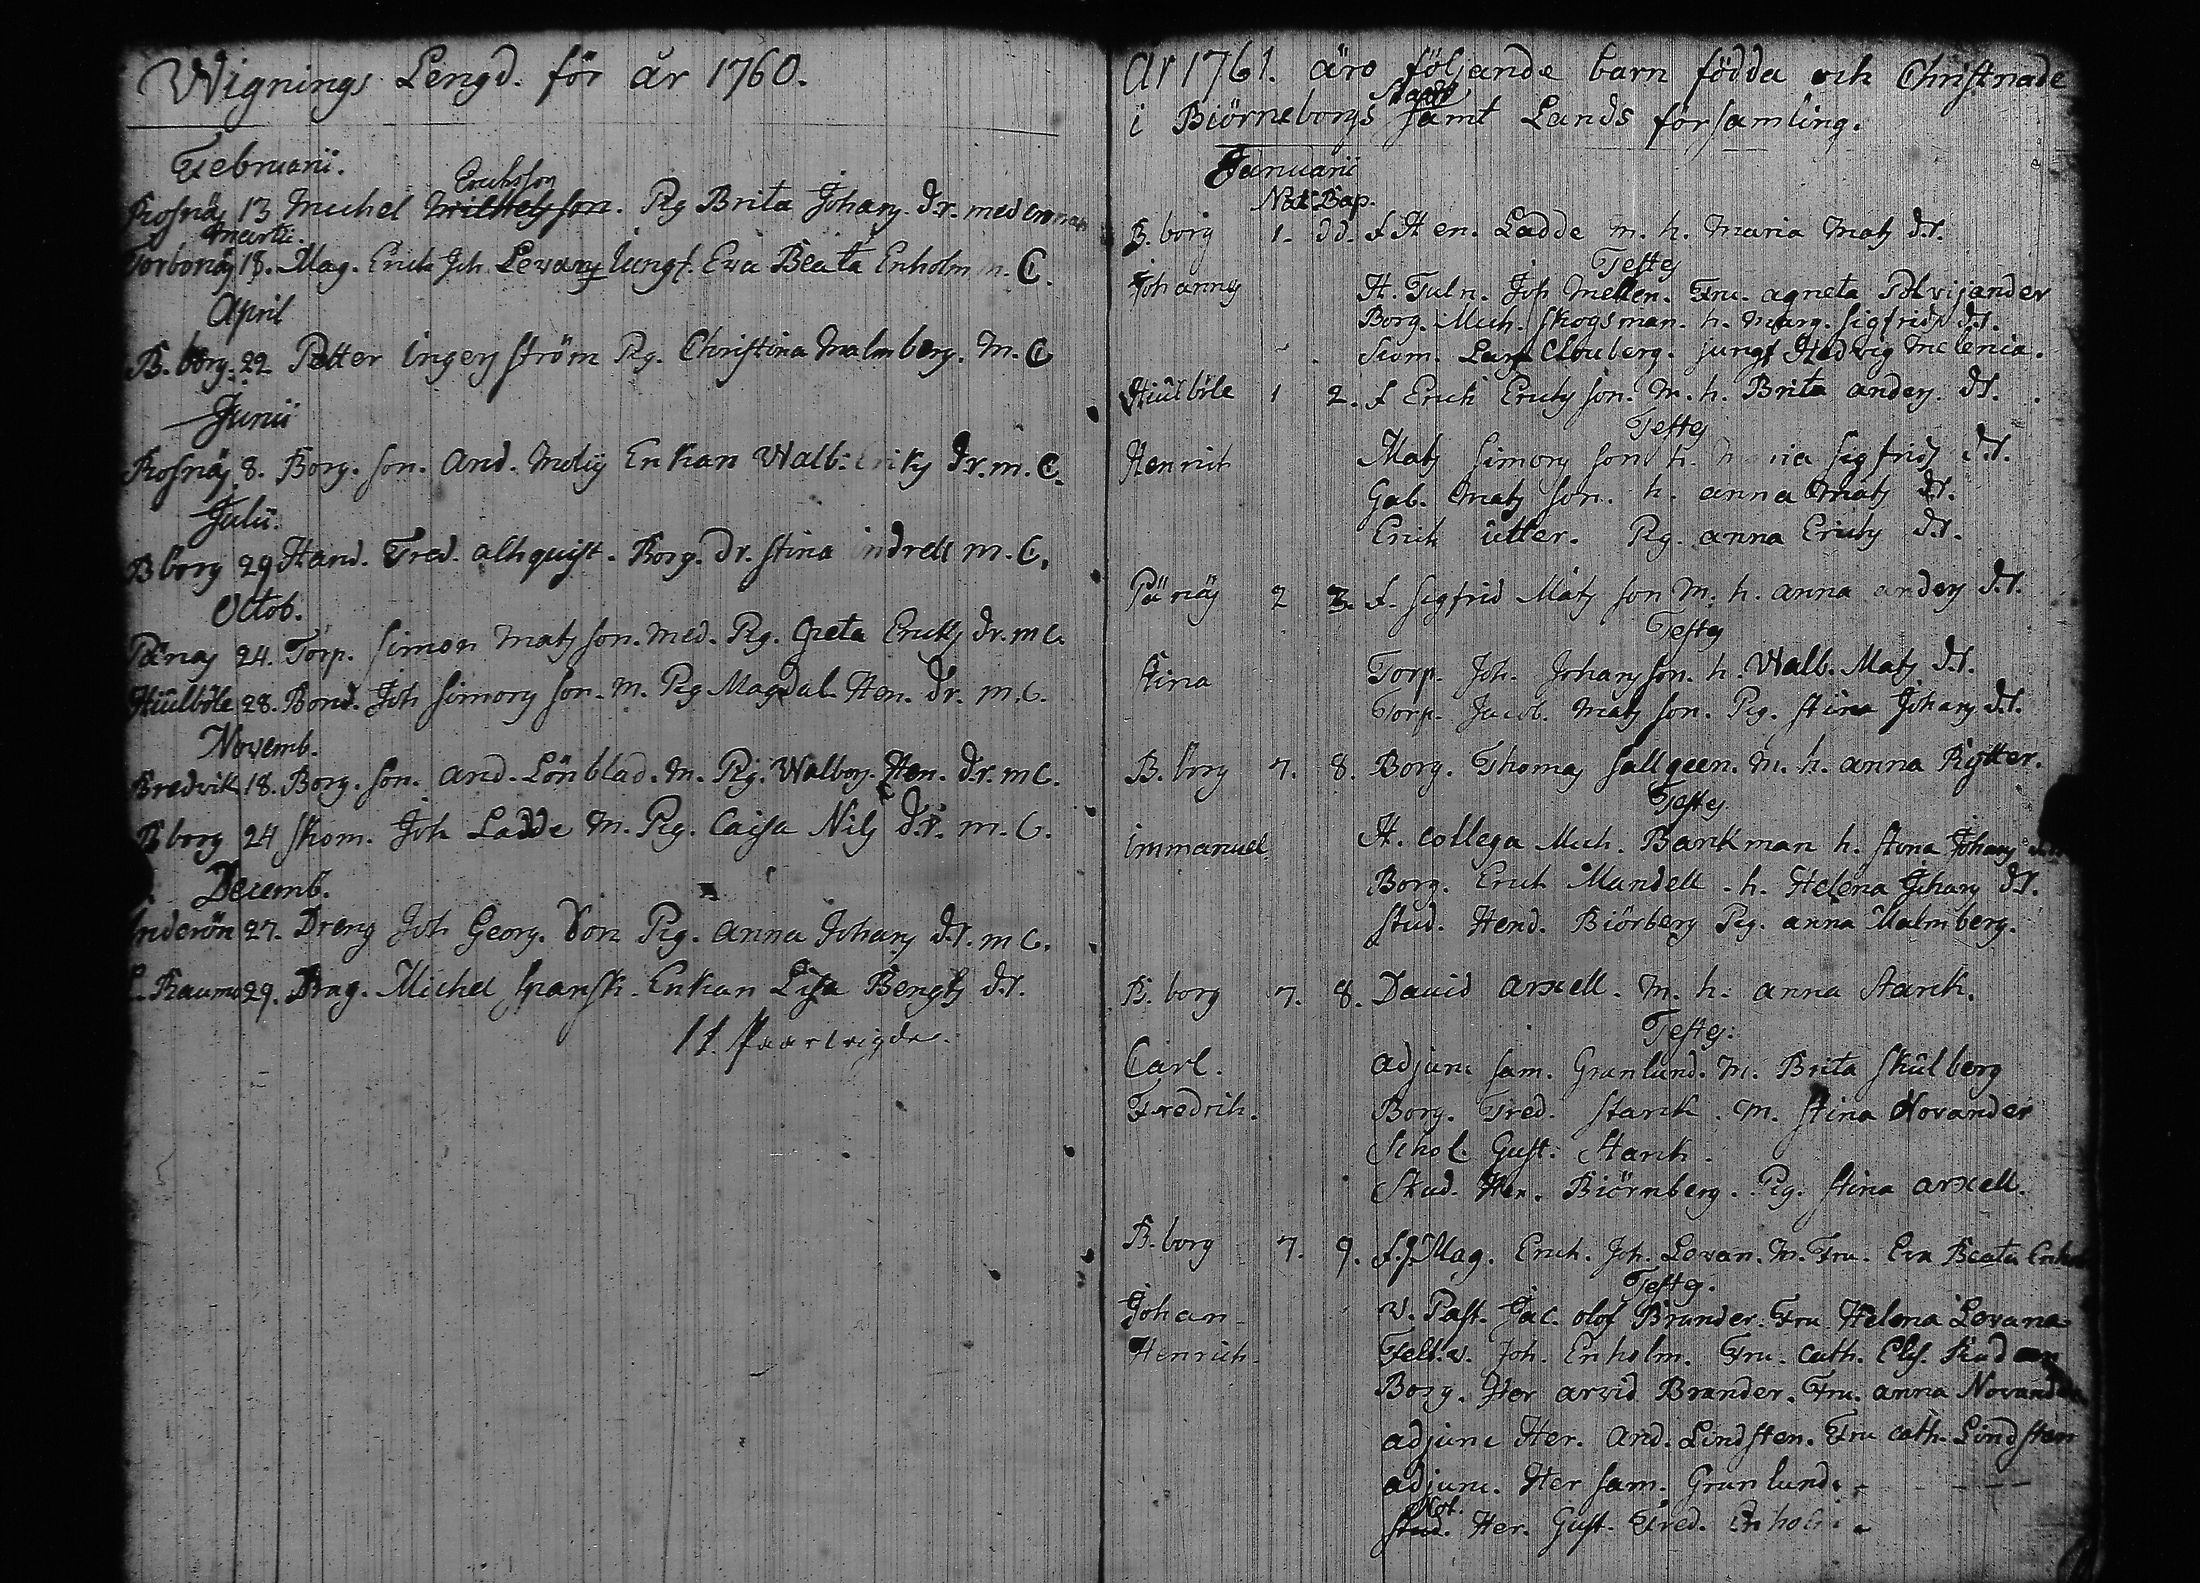 Wignings Lengd. för år 1760.
Februarii.
Erichsson
Rosnäs 13 Michel Michelsson. Pig Brita Johans dr. med
Martii.
Torbonäs 18. Mag. Erich Joh. Levan Jungf. Eva Beata Enholm m. C.
April
B. borg. 22 Petter Ingerström Pig. Christina Malmberg. M. C
Junii
Rosnäs 8. Borg. son. And. Enkan Walb. Eriks dr. m. C.
Julii.
B borg 29 Hand. Fred. Alhquist. Borg. dr. Stina Indrell m. C.
Octob.
Pänäs 24. Torp. Simon Mats son. med. Pig. Greta Ericks dr. m C.
Hiulböle 28. Bond. Joh Simons son. m. Pig Magdal. Hen. dr. m. C.
Novemb.
Bredvik 18. Borg. son. And. Lönblad. m. Pig. Walbor. Hen. dr. m C.
B borg 24 Skom. Joh Ladde M. Pig. Caisa Nils dr. m. C.
Decemb.
Inderön 27. Dreng Joh Georg. Son Pig. Anna Johans dr. m C.
L. Raumo 29. Drag. Michel Spansk. Enkan Lisa Bengts dr.
11 Paar wigde.
År 1761. äro följande barn födda och Christnade
Stads
i Biörneborgs samt Lands församling.
Januarii
Nat. Bap.
B. borg 1. dd. f Hen. Ladde m. h. Maria Mats dr.
Testes
Johannes H. Tuln. Joh Mellen. Fru. Agneta Polvijander
Borg. Mich. Skogsman. h. Marg. Sigfrids dr.
Skom. Lars Clouberg. jungf Hedvig Melenia.
Hiulböle 1 2. f Erich Erichsson. M. h. Brita Anders dr.
Testes
Henrich Mats Simons son h. Maria Sigfrids dr.
Gab. Mats son. h. Anna Mats dr.
Erich Utter. Pig. Anna Erichs dr.
Pänäs 2 3. f. Sigfrid Mats son M. h. Anna Anders dr.
Testes
Stina Torp. Joh. Johans son. h. Walb. Mats dr.
Torp. Jacob. Mats son. Pig. Stina Johans dr.
B. borg 7. 8. Borg. Thomas Sallgeen. M. h. Anna Rytter.
Testes
Immanuel. H. Collega Mich. Barkman h. Stina Johans dr.
Borg. Erich Mandell. h. Helena Johans dr.
Stud. Hend. Biörberg Pig. Anna Malmberg.
B. borg 7. 8. David Arxell. M. h. Anna Starck.
Testes:
Carl. Adjunc Sam. Granlund. M. Brita Skulberg
Fredrich. Borg. Fred. Starck. M. Stina Novander
Schol. Gust. Starck.
Stud. Hen. Biörnberg. Pig. Stina Arxell.
B. borg 7. 9. f. Mag. Erich. Joh. Levan. M. Fru. Eva Beata Enholm
Testes.
Johan V. Past. Jac. Olof Brander. Fru Helena Levana
Henrich. Felt. v. Joh. Enholm. Fru. Cath. Elis.
Borg. Her Arvid Brander. Fru. Anna Novander
Adjunc Her. And. Lindsten. Fru Cath. Lindsten
Adjunc. Her Sam. Granlund.
Not.
Stud. Her. Gust. Fred. Enholm.